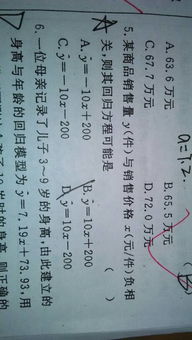 A. 63.6 万元 B. 65.5 万元
C. 67.7 万元 D. 72.0 万元
5. 某商品销售量 y(件)与销售价格 x(元/件)负相
关,则其回归方程可能是 ( )
A. ŷ=-10x+200 B. ŷ=10x+200
C. ŷ=-10x-200 D. ŷ=10x-200
6. 一位母亲记录了儿子 3~9 岁的身高,由此建立的
身高与年龄的回归模型为 y=7.19x+73.93,用